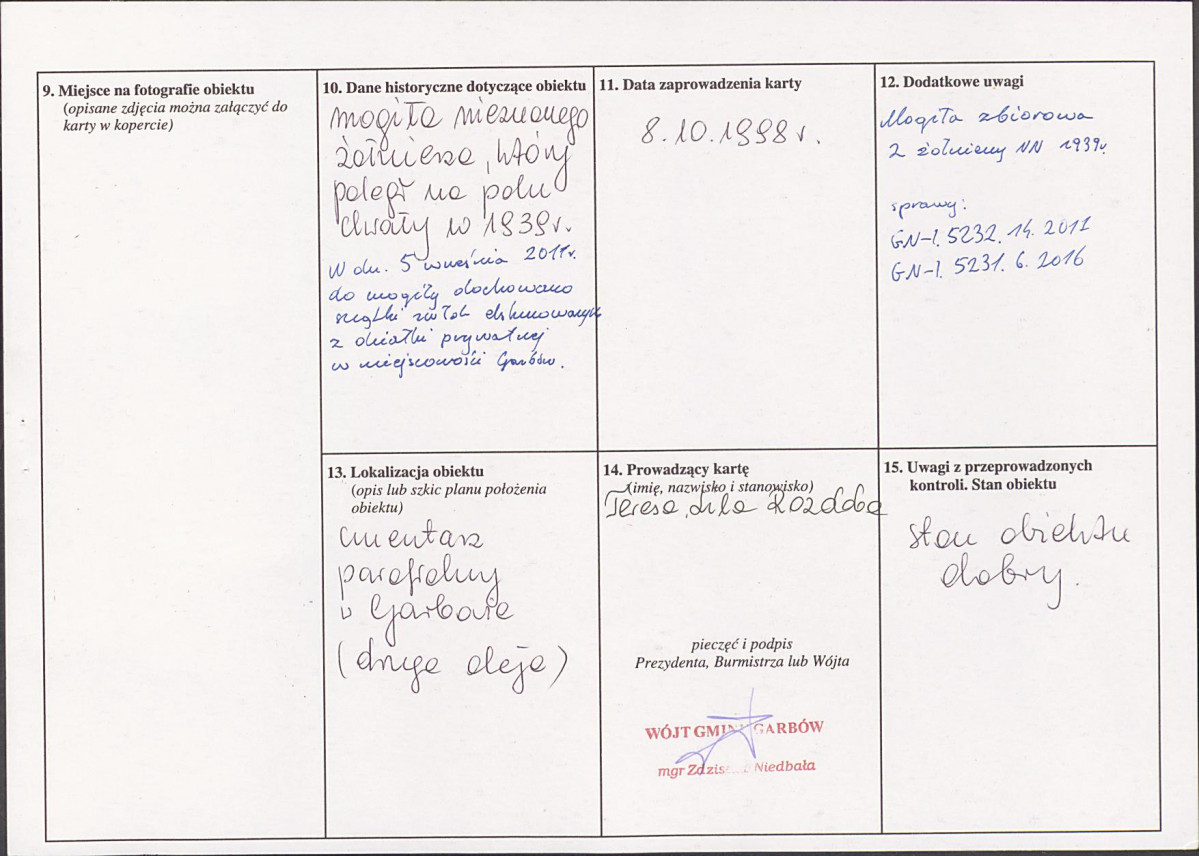 9. Miejsce na fotografie obiektu
(opisane zdjęcia można załączyć do
karty w kopercie)
10. Dane historyczne dotyczące obiektu
mogiła nieznanego
żołnierza, który
poległ na polu
chwały w 1939 r.
W dn. 5 września 2011r.
do mogiły dochowano
szczątki zwłok ekshumowanych
z działki prywatnej
w miejscowości Garbów.
11. Data zaprowadzenia karty
8.10.1998 r.
12. Dodatkowe uwagi
Mogiła zbiorowa
2 żołnierzy NN 1939r.
sprawy:
GN-I. 5232. 14. 2011
GN-I. 5231. 6. 2016
13. Lokalizacja obiektu
(opis lub szkic planu położenia
obiektu)
cmentarz
parafialny
w Garbowie
(druga aleja)
14. Prowadzący kartę
(imię, nazwisko i stanowisko)
Teresa
pieczęć i podpis
Prezydenta, Burmistrza lub Wójta
WÓJT GMINY GARBÓW
mgr Zdzisław Niedbała
15. Uwagi z przeprowadzonych
kontroli. Stan obiektu
stan obiektu
dobry.